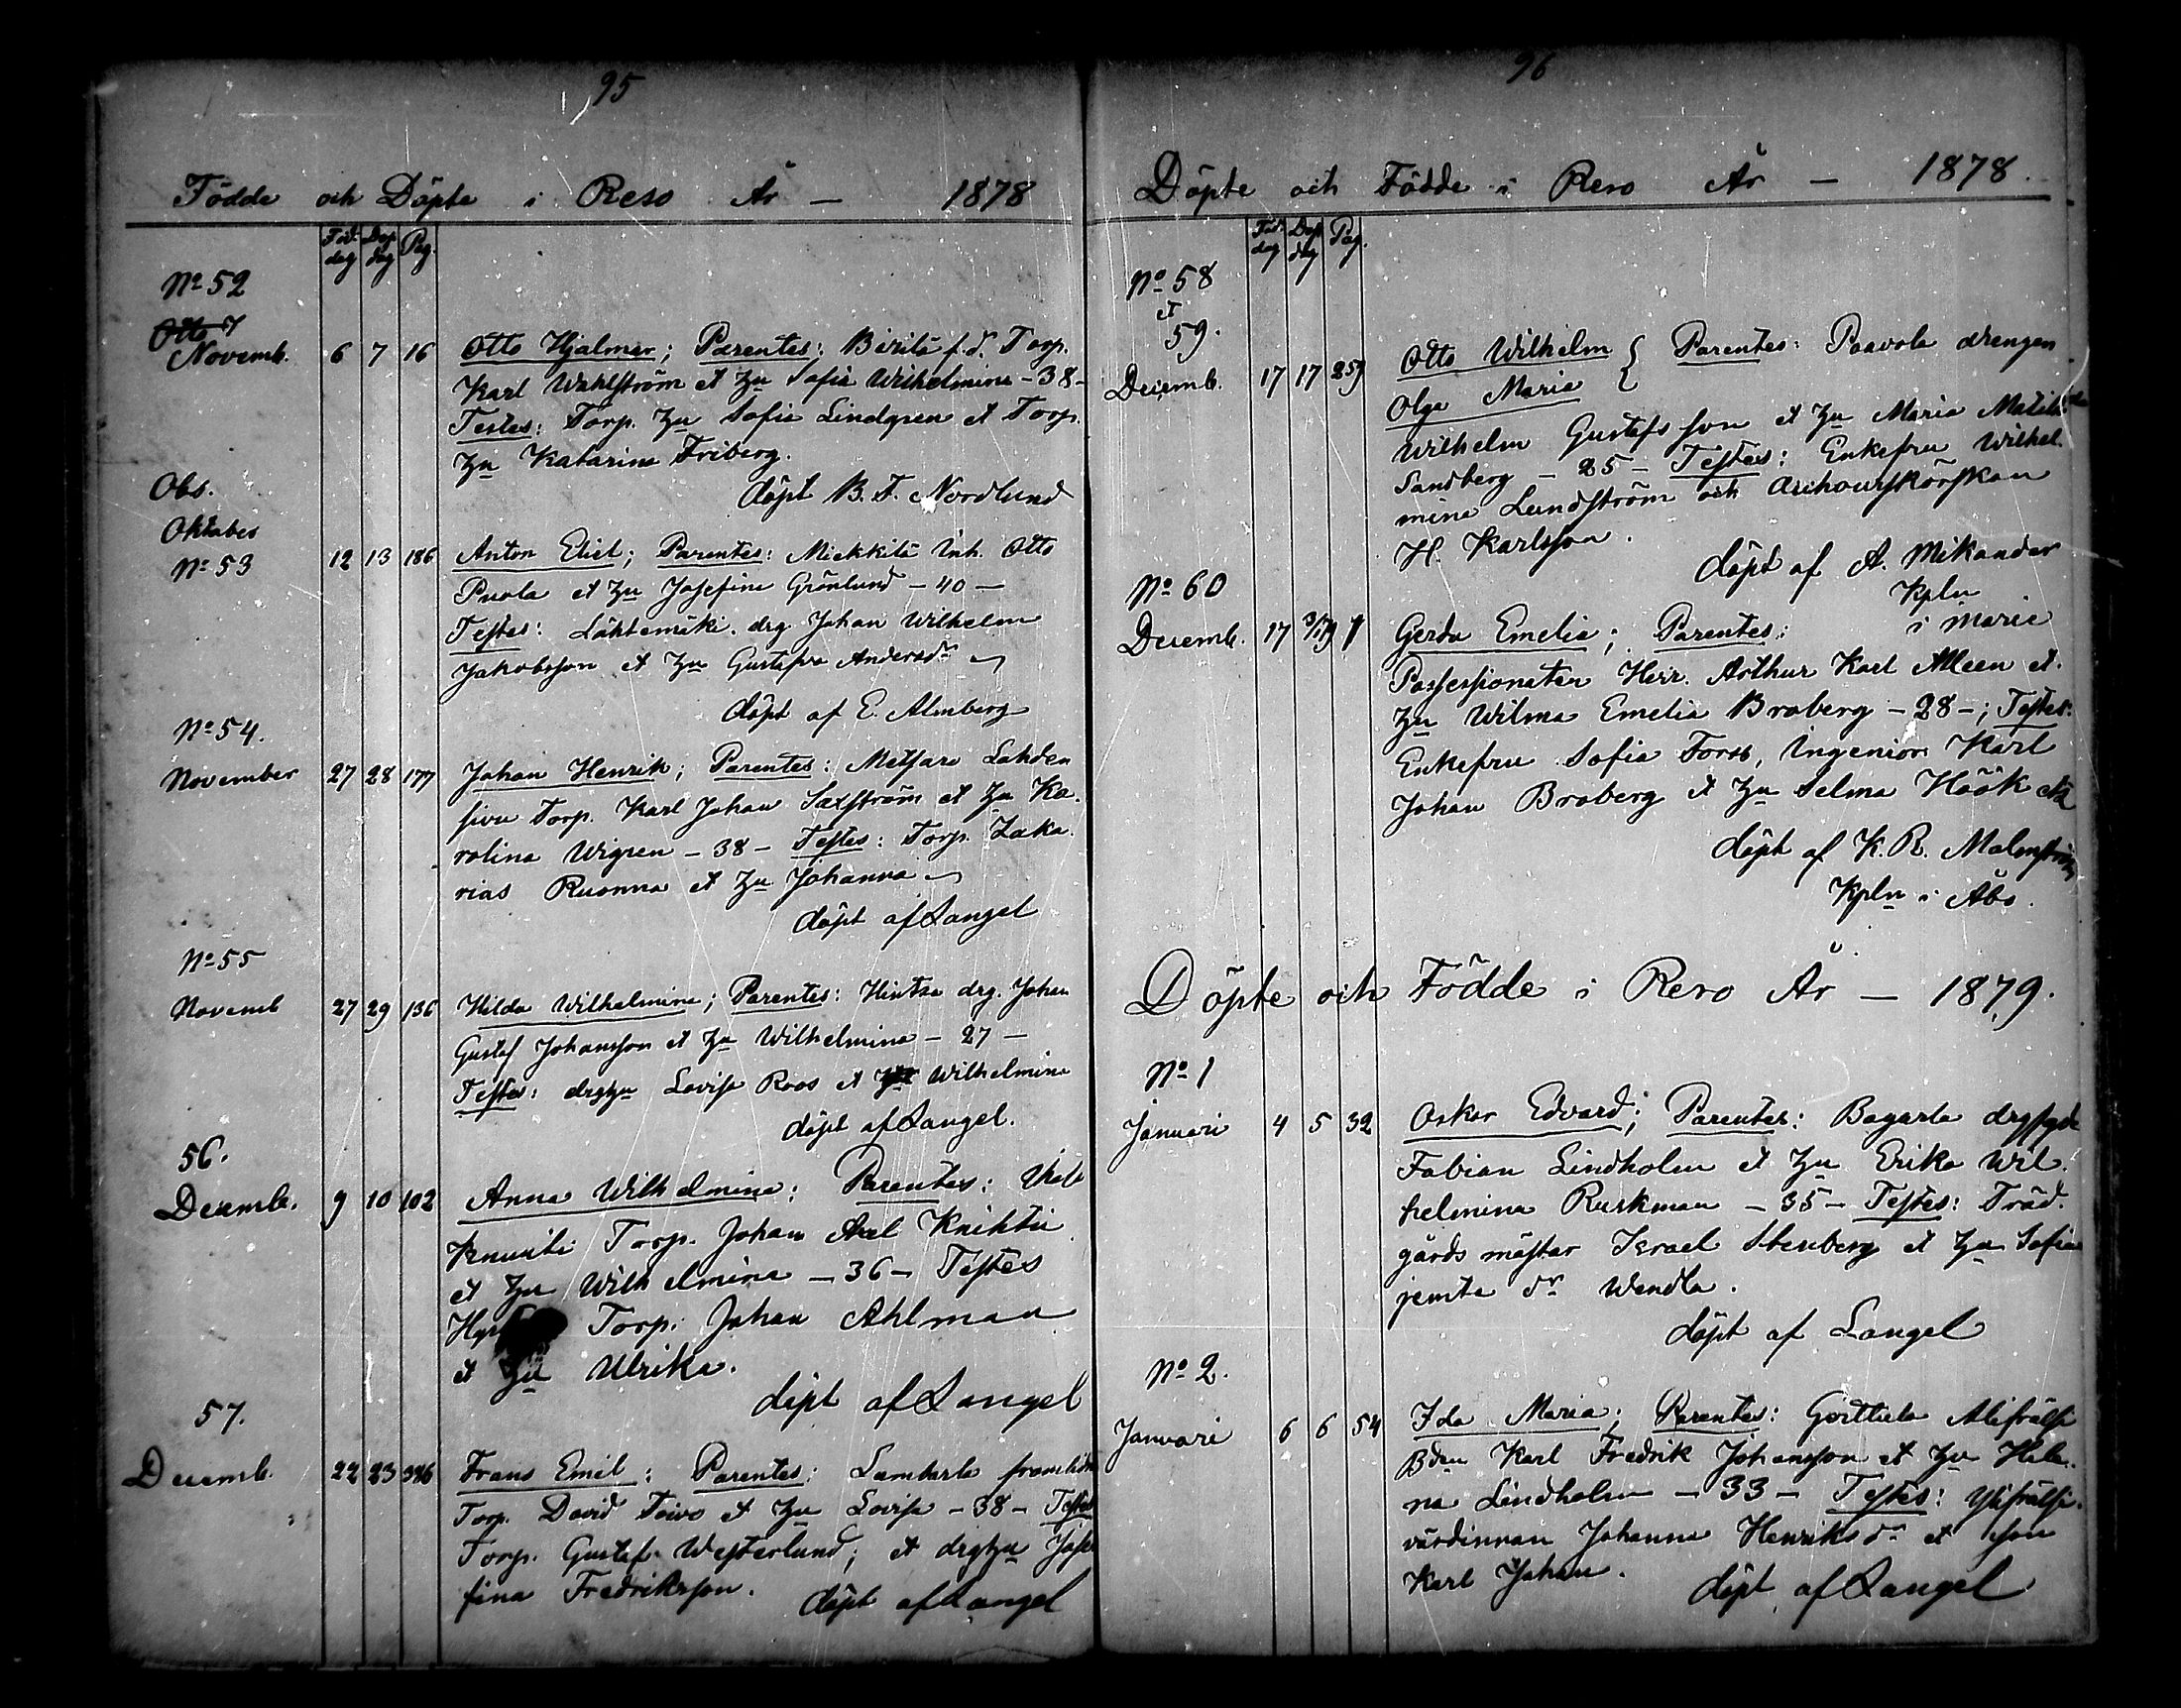 95
Födde och Döpte i Reso År — 1878
Föd. dag Döp dag Pag.
No 52
Novemb. 6 7 16 Otto Hjalmar; Parentes: Birilä f.d. Torp.
Karl Wahlström et hu Sofia Wilhelmina - 38 -
Testes: Torp. hu Sofia Lindgren et Torp.
hu Katarina Friberg.
döpt B. F. Nordlund
Obs.
Oktober
No 53 12 13 186 Anton Eliel; Parentes: Miekkilä Inh. Otto
Puola et hu Josefina Grönlund - 40 -
Testes: Lähtemäki drg. Johan Wilhelm
Jakobsson et hu Gustafva Andersdr
döpt af E. Almberg
No 54.
November 27 28 177 Johan Henrik; Parentes: Lahden
sivu Torp. Karl Johan Saxström et hu Ka-
rolina Wigren - 38 - Testes: Torp. Zaka-
rias Ruonna et hu Johanna
döpt af Langel
No 55
Novemb 27 29 136 Hilda Wilhelmina; Parentes: Hintsa drg. Johan
Gustaf Johansson et hu Wilhelmina - 27 -
Testes: drghu Lovisa Roos et Wilhelmina
döpt af Langel.
56.
Decemb. 9 10 102 Anna Wilhelmina; Parentes:
Knuuti Torp. Johan Axel Knihti
et hu Wilhelmina - 36 - Testes
Torp. Johan Ahlman
et hu Ulrika.
döpt af Langel
57.
Decemb. 22 23 326 Frans Emil: Parentes: Lambarla
Torp. David Toivo et hu Lovisa - 38 - Testes
Torp. Gustaf Westerlund; et drghu Jose
fina Fredriksson. döpt af Langel
96
Döpte och Födde i Reso År — 1878.
Föd. dag Döp dag Pag.
No 58
et
59.
Decemb. 17 17 259 Otto Wilhelm { Parentes: Paavola drengen
Olga Maria {
Wilhelm Gustafsson et hu Maria Matilda
Sandberg - 25 - Testes: Enkefru Wilhel-
mina Lundström och
H. Karlsson.
döpt af A. Mikander
Kpln
i Marie
No 60
Decemb. 17 Gerda Emelia; Parentes:
Possessionaten Herr Arthur Karl Alleen et.
hu Wilma Emelia Broberg - 28 -; Testes:
Enkefru Sofia Forss, Ingeniör Karl
Johan Broberg et hu Selma Höök etc
döpt af K. R. Malmström
Kpln i Åbo.
Döpte och Födde i Reso År — 1879.
No 1
Januari 4 5 32 Oskar Edvard; Parentes: Bagarla
Fabian Lindholm et hu Erika Wil-
helmina Ruskman - 35 - Testes: Träd-
gårds mästar Israel Stenberg et hu Sofia
jemte dr Wendla.
döpt af Langel
No 2.
Januari 6 6 54 Ida Maria; Parentes:
Bden Karl Fredrik Johansson et hu Hele-
na Lindholm - 33 - Testes:
värdinnan Johanna Henriksdr et son
Karl Johan.
döpt af Langel